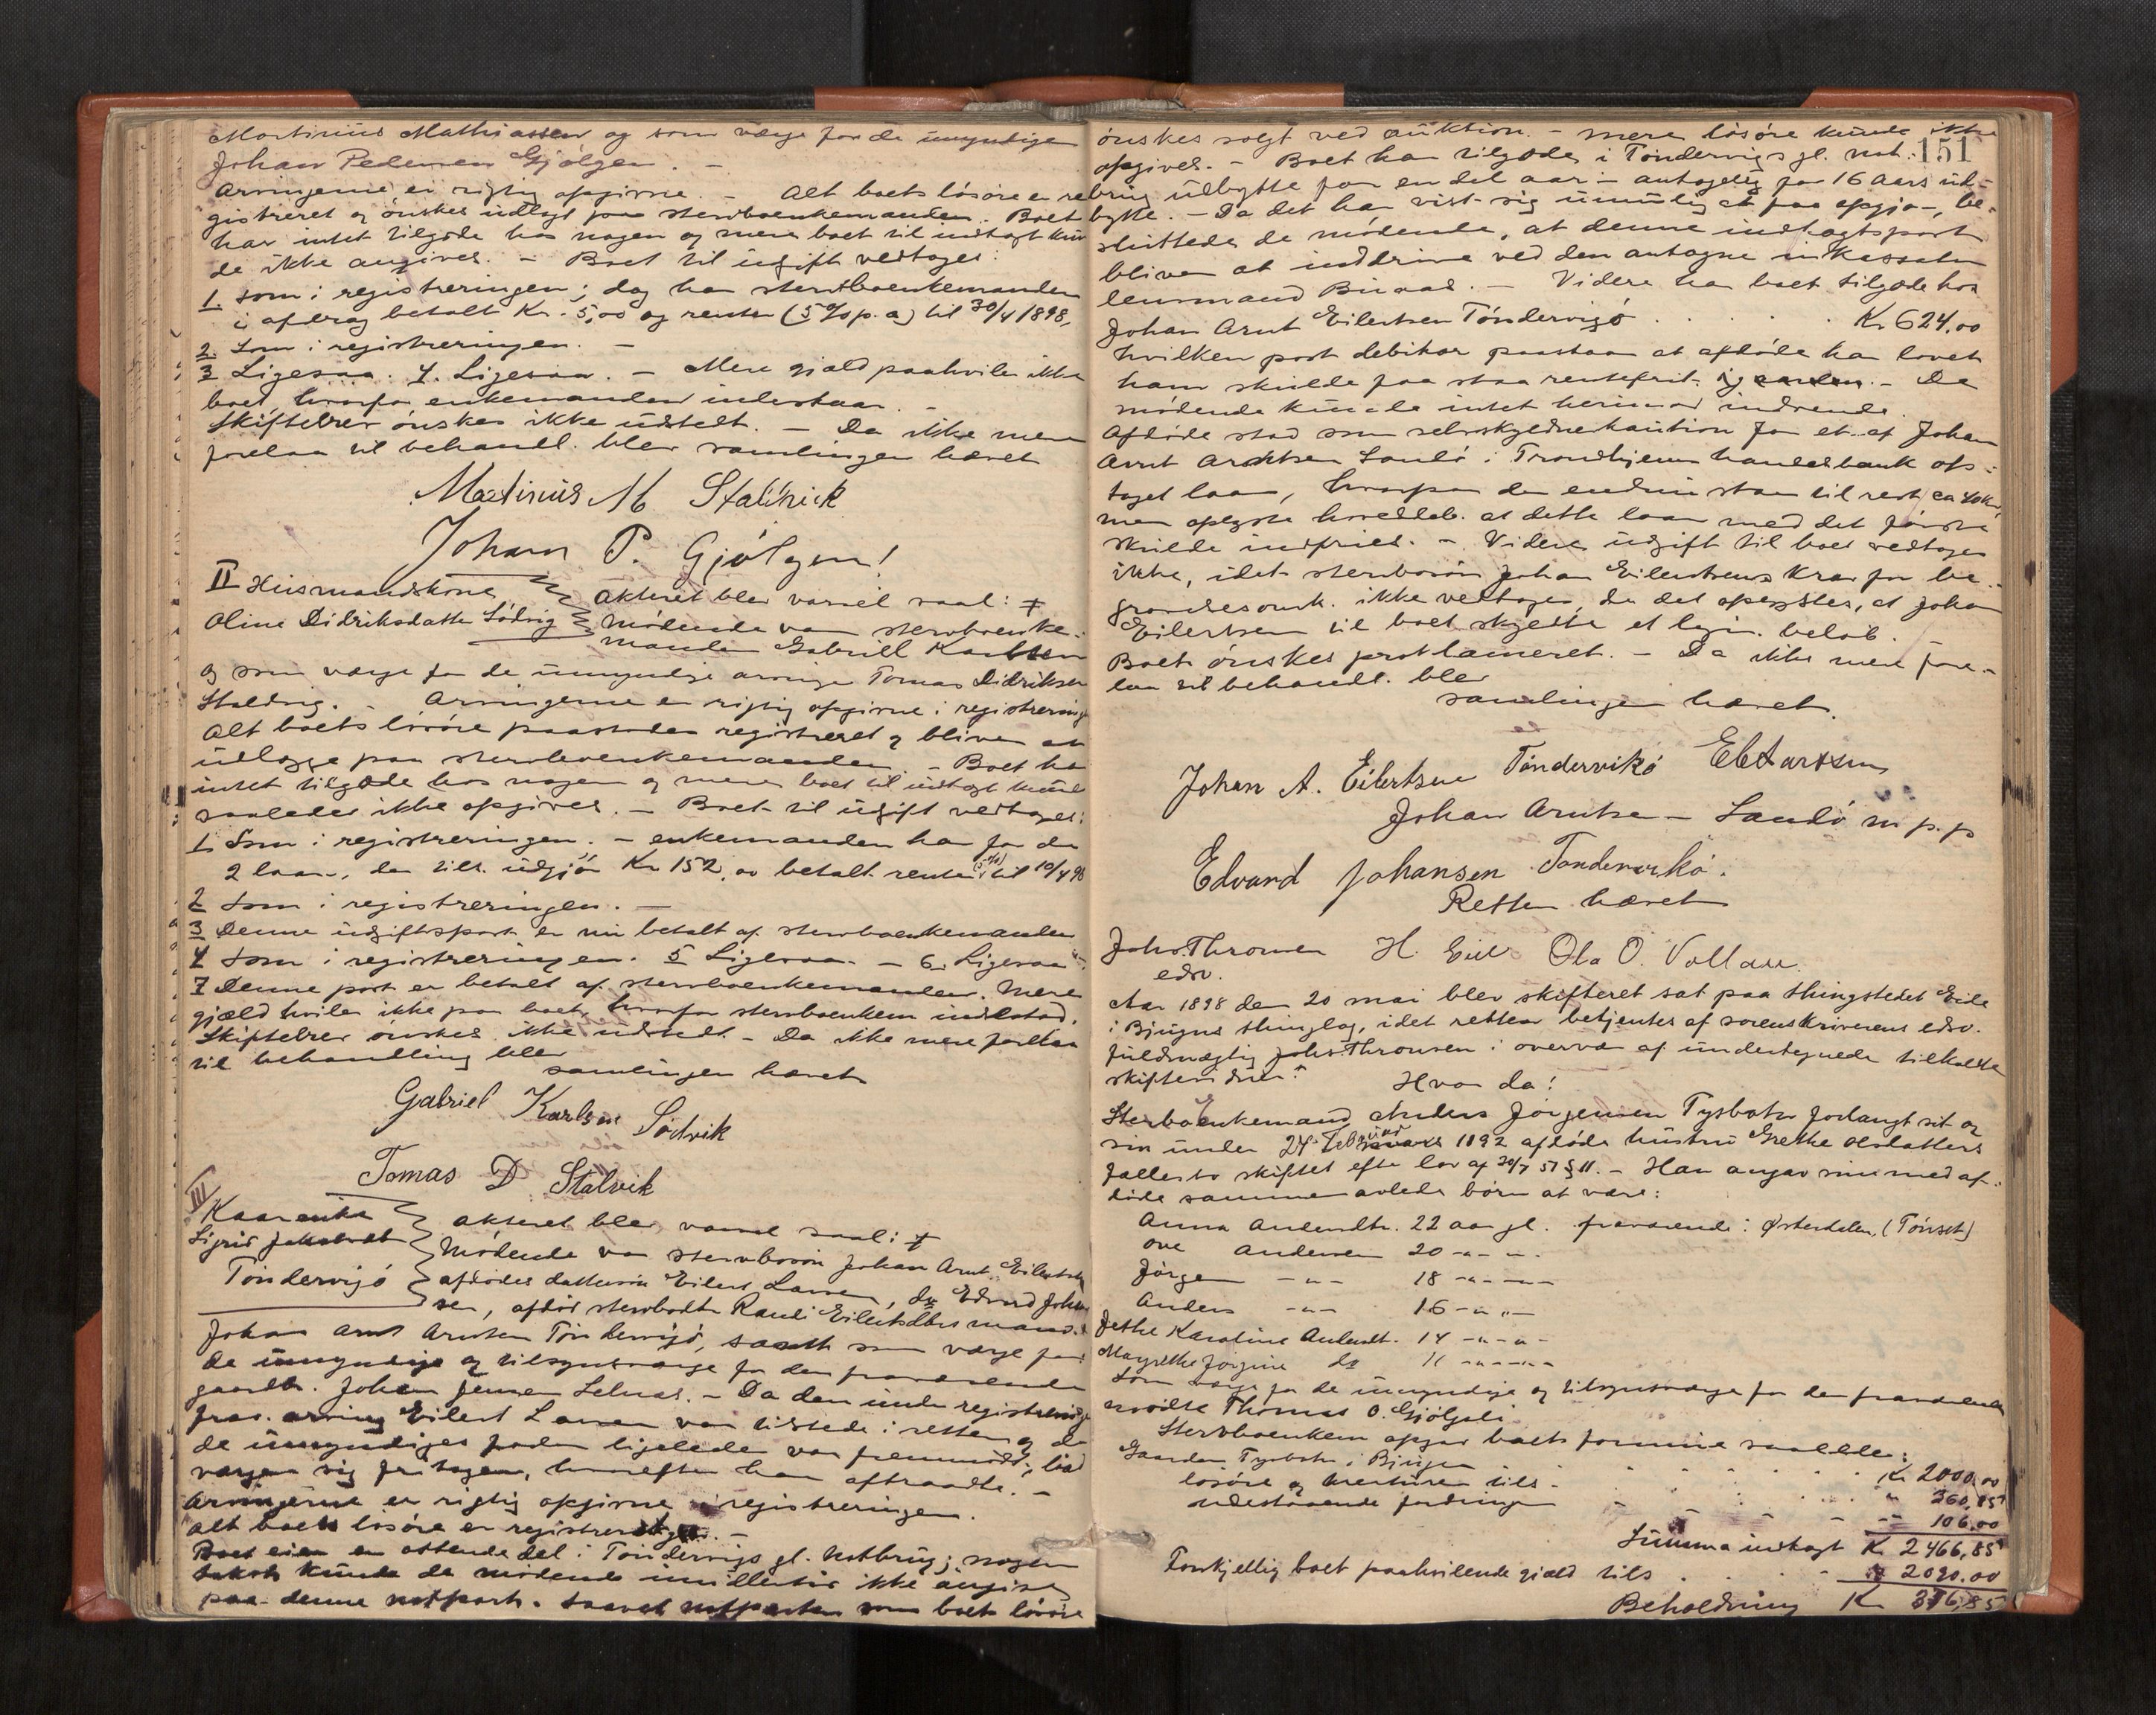 Martinius Mathiassen og som værge for de umyndige
Johan Pedersen Gjølgen. –
Arvingerne er rigtig opgivne. – Alt boets løsøre er re
gistreret og ønskes udlagt paa stervboenkemanden. Boet
har intet tilgode hos nogen og mere boet til indtægt kun
de ikke angives. – Boet til udgift vedtages:
1. Som i registreringen; dog har stervboenkemanden
i afdrag betalt Kr. 5,00 og renter (5 % p. a) til 30/4 1898,
2. Som i registreringen. –
3 Ligesaa. 4. Ligesaa. – Mere gjæld paahviler ikke
boet, hvorfor enkemanden indestaar. –
Skiftebrev ønskes ikke udstedt. – Da ikke mere
forelaa til behandl. blev samlingen hævet
Martinius M Stallvik
Johan P. Gjølgen!
II Husmandskone
Oline Didriksdatter Sødvig
Akteret blev varsel saal: ≠
Mødende var stervboenke-
manden Gabriell Karlsen
og som værge for de umyndige arvinge Tomas Didriksen
Staldvig. – Arvingerne er rigtig opgivne i registrering
Alt boets løsøre paastodes registreret og bliver at
udlægge paa stervboenkemanden. – Boet har
intet tilgode hos nogen og mere boet til indtægt kund
saaledes ikke opgives. – Boet til udgift vedtages:
1. Som i registreringen. – enkemanden har for de
2 laan, der tils. udgjør Kr 152,00 betalt renter (5%) til 10/4 98
2 Som i registreringen. –
3 Denne udgiftspost er nu betalt af stervboenkemanden
4 Som i registreringen. 5 Ligesaa. – 6. Ligesaa
7 Denne post er betalt af stervboenkemanden. Mere
gjæld hviler ikke paa boet, hvorfor stervboenkem indestod.
Skiftebrev ønskes ikke udstedt. – Da ikke mere forelaa
til behandling blev
samlingen hævet
Gabriel Karlsen Sødvik
Tomas D Stalvik
III
Kaarenke
Sigrid Jakobsdt
Tøndervigø
Akteret blev varsel saal: ≠
Mødende var stervbosøn Johan Arnt Eilertsen
afdødes dattersøn Eilert Larsen, do Edvard Johan
sen, afdød stervbodtr Randi Eilertsdtrs mand
Johan Arnt Arntsen Tøndervigø, samt som værge for
de umyndige og tilsynsværge for den fraværende
gaardbr. Johan Jensen Selnes. – Da den under registrering
frav. arving Eilert Larsen var tilstede i retten og de
de umyndiges fader ligeledes var fremmødt, bad
værgen sig fritagen, hvorefter han aftraadte. –
Arvingerne er rigtig opgivne i registreringen.
Alt boets løsøre er registreret. –
Boet eier en ottende del i Tøndervigs gl. Notbrug; nogen
takst kunde de mødende imidlertid ikke angive
paa denne notpart. Saavel notparten som boets løsøre
151
ønskes solgt ved auktion. – mere løsøre kunde ikke
opgives. – Boet har tilgode i Tøndervigs gl. not-
brug udbytte for en del aar – antagelig for 16 aars ud-
bytte. – Da det har vist sig umulig at faa opgjør, be-
sluttede de mødende, at denne indtægtspost
bliver at inddrive ved den antagne inkassator
lensmand Buaas. – Videre har boet tilgode hos
Johan Arnt Eilertsen Tøndervigø . . . . . Kr 624,00
hvilken post debitor paastaar at afdøde har lovet
ham skulde faa staa rentefrit. – De
mødende kunde intet herimod indvende.
Afdøde stod som selvskyldnerkaution for et af Johan
Arnt Arntsen Sandø i Trondhjems handelsbank op-
taget laan, hvorpaa der endnu staar til rest ca 40 kr,
men oplyste hovedddeb. at dette laan med det første
skulde indfries. – Videre udgift til boet vedtages
ikke, idet stervbosøn Johan Eilertsens krav for be-
gravelsesomk. ikke vedtages, da det oplystes, at Johan
Eilertsen til boet skyldte et lign. beløb. –
Boet ønskes proklameret. – Da ikke mere fore-
laa til behandl. blev
samlingen hævet.
Johan A. Eilertsen Tøndervikø
Johan Arntsen – Sandø m.p.p
Edvard Johansen Tøndervikø.
Retten hævet
Johs. Thronsen H. Eid Ola O. Vollan.
edsv.
Aar 1898 den 20 mai blev skifteret sat paa thingstedet Eide
i Bjugns thinglag, idet retten betjentes af sorenskriverens edsv.
fuldmægtig Johs. Thronsen i overvær af undertegnede tilkaldte
skiftevidner.
Hvor da!
Stervboenkemand Anders Jørgensen Tysbotn forlangt sit og
sin under 24. Februar 1892 afdøde hustru Grethe Olsdatters
fællesbo skiftet efter lov af 30/7 51 § 11. – Han angav sine med af-
døde sammenavlede børn at være:
Anna Andersdtr. 22 aar gl. fraværende i Østerdalen, (Tønset)
Ove Andersen 20 –"– "–
Jørgen –"– 18 –"– –"–
Anders –"– 16 –"– "–
Jethe Karoline Andersdt. 14 –"–"–
Magrethe Jørgine do 11 –"– –"–
Som værge for de umyndige og tilsynsværge for den fraværende
mødte Thomas O. Gjølgali
Stervboenkem opgav boets formue saaledes:
Gaarden Tysbotn i Bjugn . . . . . Kr 2000,00
løsøre og kreaturer tils. . . . . . " 360,85
udestaaende fordringer – – – – " 106,00
Summa indtægt Kr 2466,85
Forskjellig boet paahvilende gjæld tils . . . . " 2090.00
Beholdning Kr 376,85